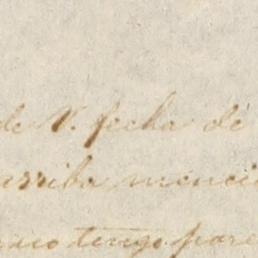 de V. fecha de
arriba menci
tengo pare